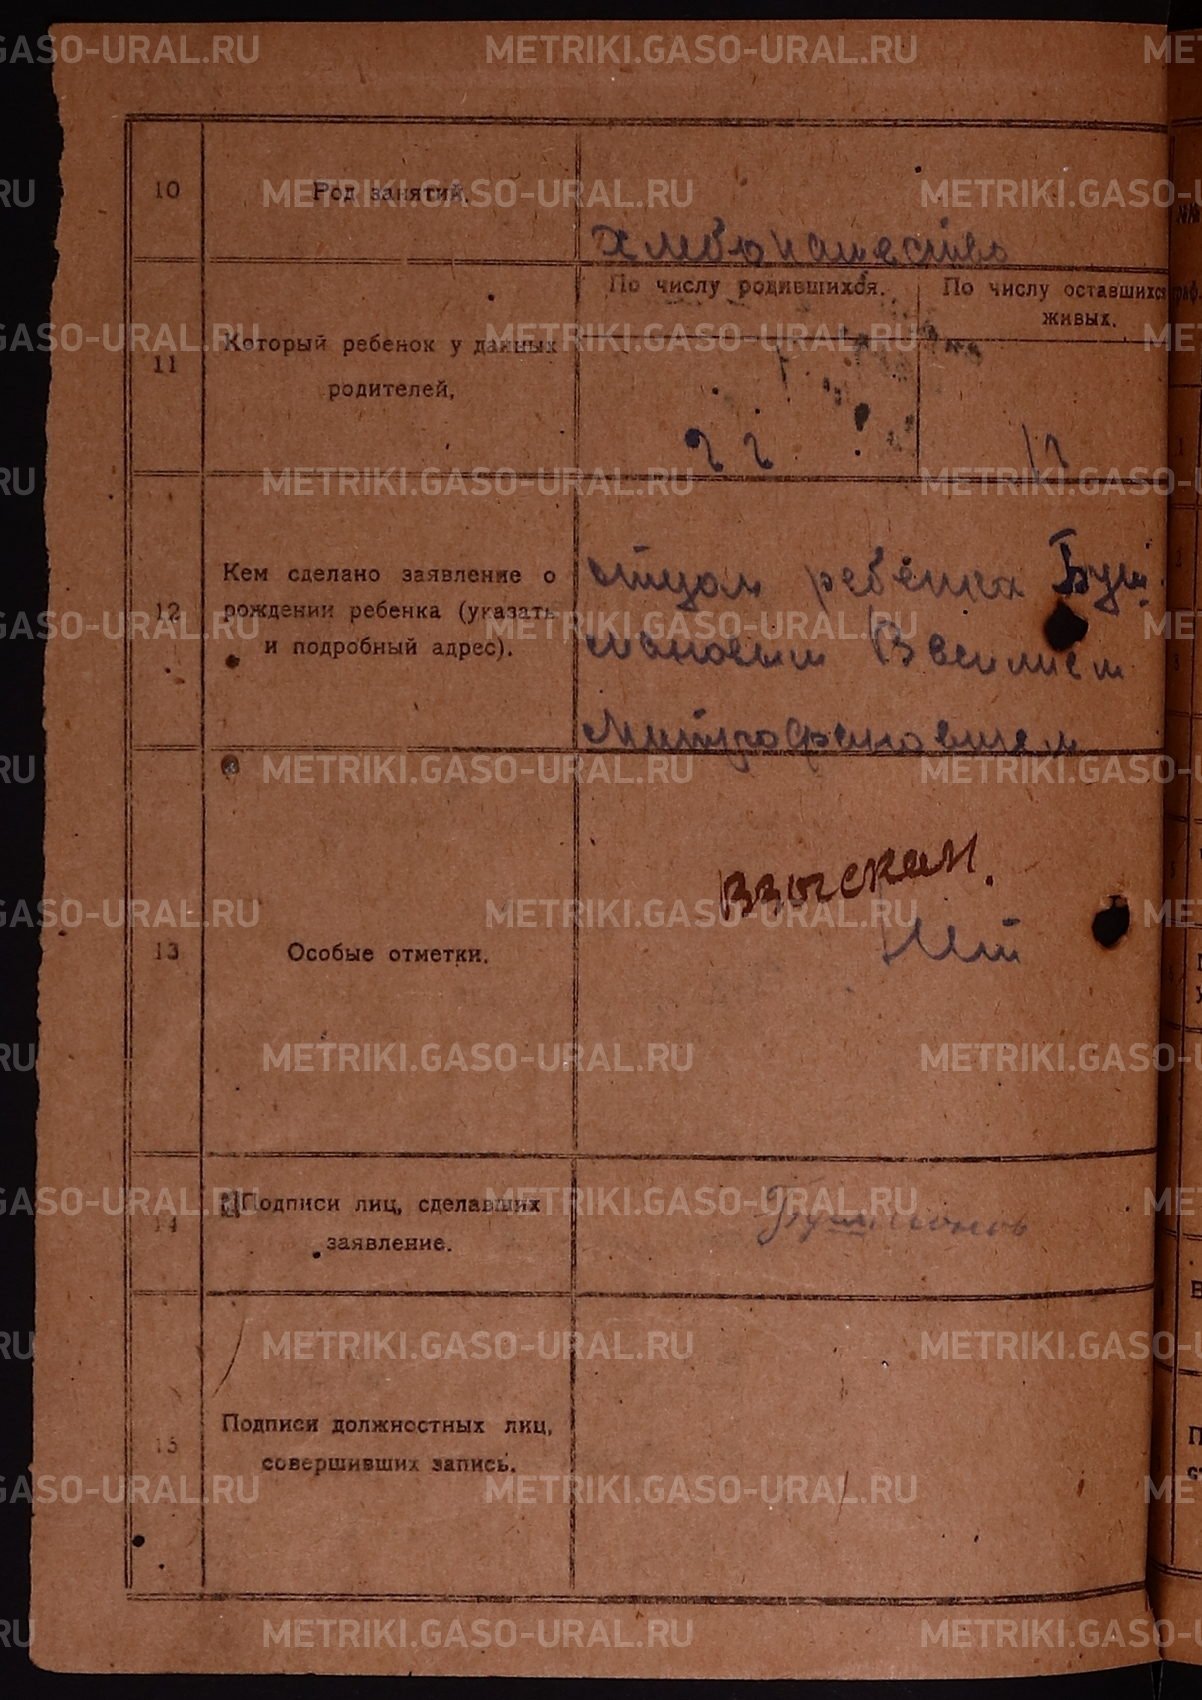 10
Род занятий.
Хлебопашество
11
Который ребенок у данных
родителей.
По числу родившихся.
По числу оставшихся
живых.
22
12
12
Кем сделано заявление о
рождении ребенка (указать
и подробный адрес).
отцом ребенка Буш
мановым Василием
Митрофановичем
13
Особые отметки.
Взыскан.
Нет
14
Подписи лиц, сделавших
заявление.
15
Подписи должностных лиц,
совершивших запись.
METRIKI.GASO-URAL.RU